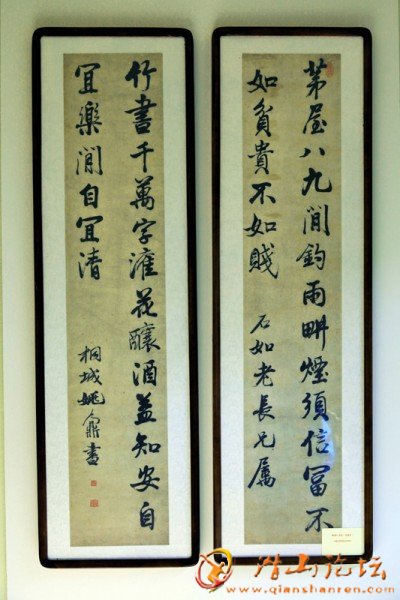 茅屋八九間釣雨畊煙須信冨不
如貧貴不如賤
石如老長兄属
竹書千萬字灌花釀酒盖知安自
冝樂閒自冝清
桐城姚鼐書
潜山论坛
www.qianshanren.com